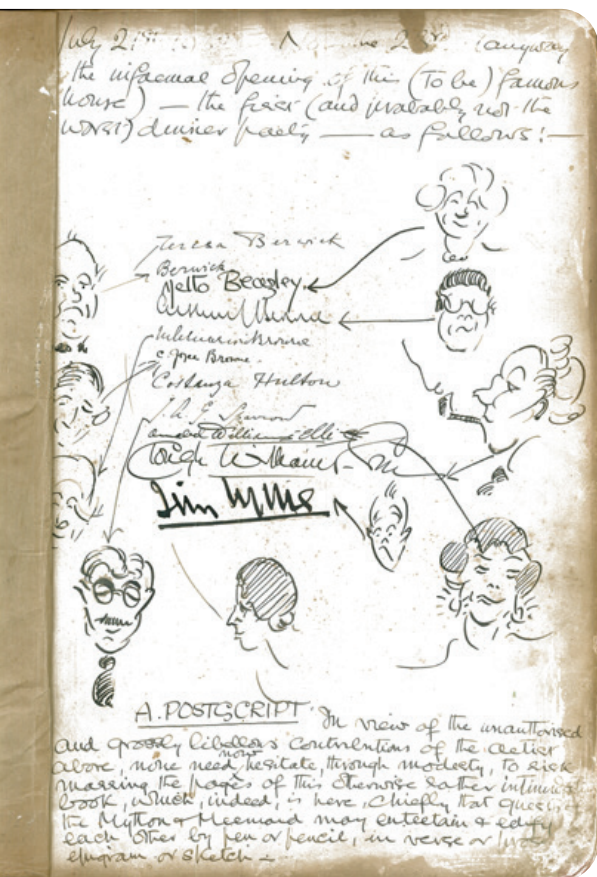 July 21st (anyway
the informal opening of this (to be) famous
house) — the first (and probably not the
worst) dinner party — as follows:—
Teresa Berwick
Berwick
Jetto Beazley
C. Joyce Browne.
Costanza Hulton
J. A. G. Sparrow
Amabel Williams-Ellis
Clough Williams-Ellis
A. POSTSCRIPT. In view of the unauthorised
and grossly libellous contributions of the artist
above, none need now hesitate, through modesty, to risk
marring the pages of this otherwise rather intimidating
book, which, indeed, is here chiefly that guests of
the Mytton & Mermaid may entertain & edify
each other by pen or pencil, in verse or prose
epigram or sketch —